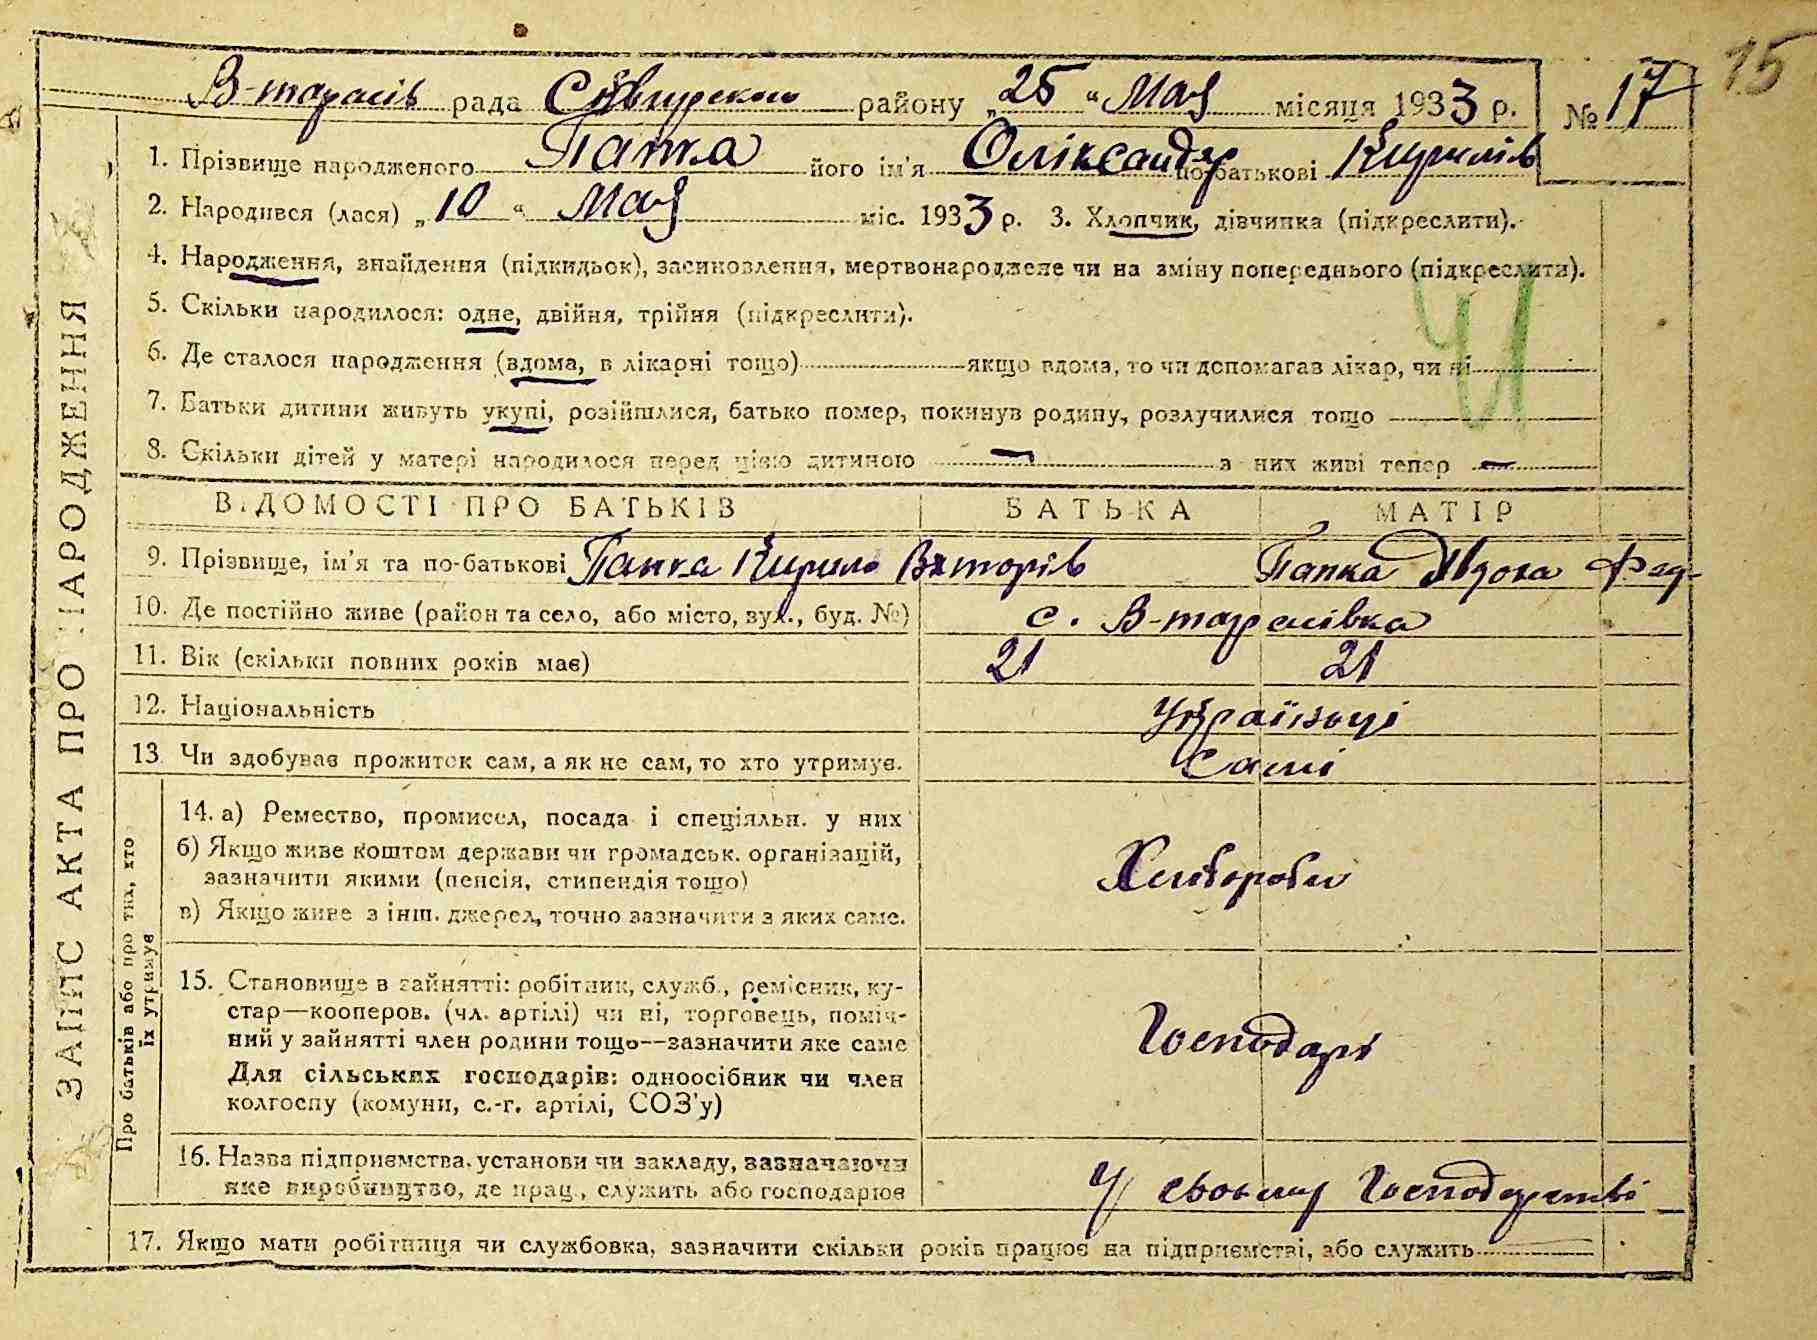 15
В-тарасів рада Сквирского району „25“ Мая місяця 1933 р. № 17
ЗАПИС АКТА ПРО НАРОДЖЕННЯ
1. Прізвище народженого Папка його ім'я Оліксандр по батькові Кирилів
2. Народився (лася) „10“ Мая міс. 1933 р. 3. Хлопчик, дівчинка (підкреслити).
4. Народження, знайдення (підкидьок), засиновлення, мертвонароджене чи на зміну попереднього (підкреслити).
5. Скільки народилося: одне, двійня, трійня (підкреслити).
6. Де сталося народження (вдома, в лікарні тощо) якщо вдома, то чи допомагав лікар, чи ні
7. Батьки дитини живуть укупі, розійшлися, батько помер, покинув родину, розлучилися тощо
8. Скільки дітей у матері народилося перед цією дитиною — з них живі тепер —
ВІДОМОСТІ ПРО БАТЬКІВ БАТЬКА МАТІР
9. Прізвище, ім'я та по-батькові Папка Кирило Вікторів Папка Явдоха Фед-
10. Де постійно живе (район та село, або місто, вул., буд. №) с. В-тарасівка
11. Вік (скільки повних років має) 21 21
12. Національність Українці
13 Чи здобуває прожиток сам, а як не сам, то хто утримує. Самі
Про батьків або про тих, хто їх утримує
14. а) Ремество, промисел, посада і спеціяльн. у них
б) Якщо живе коштом держави чи громадськ. організацій,
зазначити якими (пенсія, стипендія тощо) Хлібороби
в) Якщо живе з інш. джерел, точно зазначити з яких саме.
15. Становище в зайнятті: робітник, служб., ремісник, ку-
стар—кооперов. (чл. артілі) чи ні, торговець, поміч-
ний у зайнятті член родини тощо—зазначити яке саме Господарі
Для сільських господарів: одноосібник чи член
колгоспу (комуни, с.-г. артілі, СОЗ'у)
16. Назва підприємства, установи чи закладу, зазначаючи
яке виробництво, де прац., служить або господарює У своьму Господарстві
17. Якщо мати робітниця чи службовка, зазначити скільки років працює на підприємстві, або служить